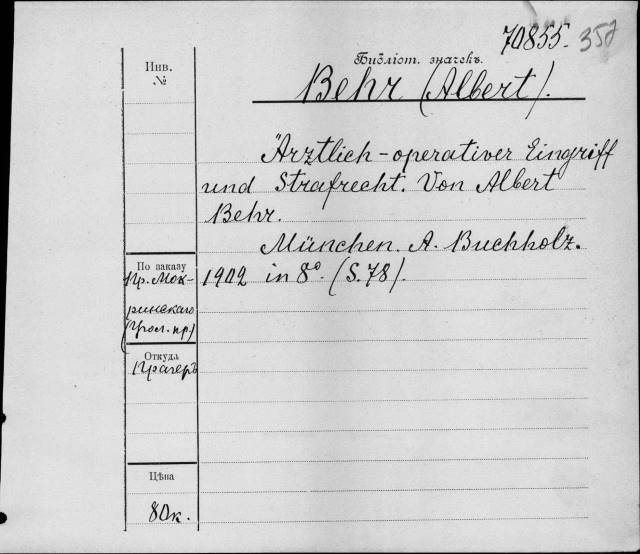 70855. 357
Библіот. значекъ.
Инв.
№
Behr (Albert).
Ärztlich-operativer Eingriff
und Strafrecht. Von Albert
Behr.
München. A. Buchholz.
1902 in 8°. (S. 78).
По заказу
Пр. Мок-
ринскаго
(Урол. пр.)
Откуда
Прагеръ
Цѣна
80к.